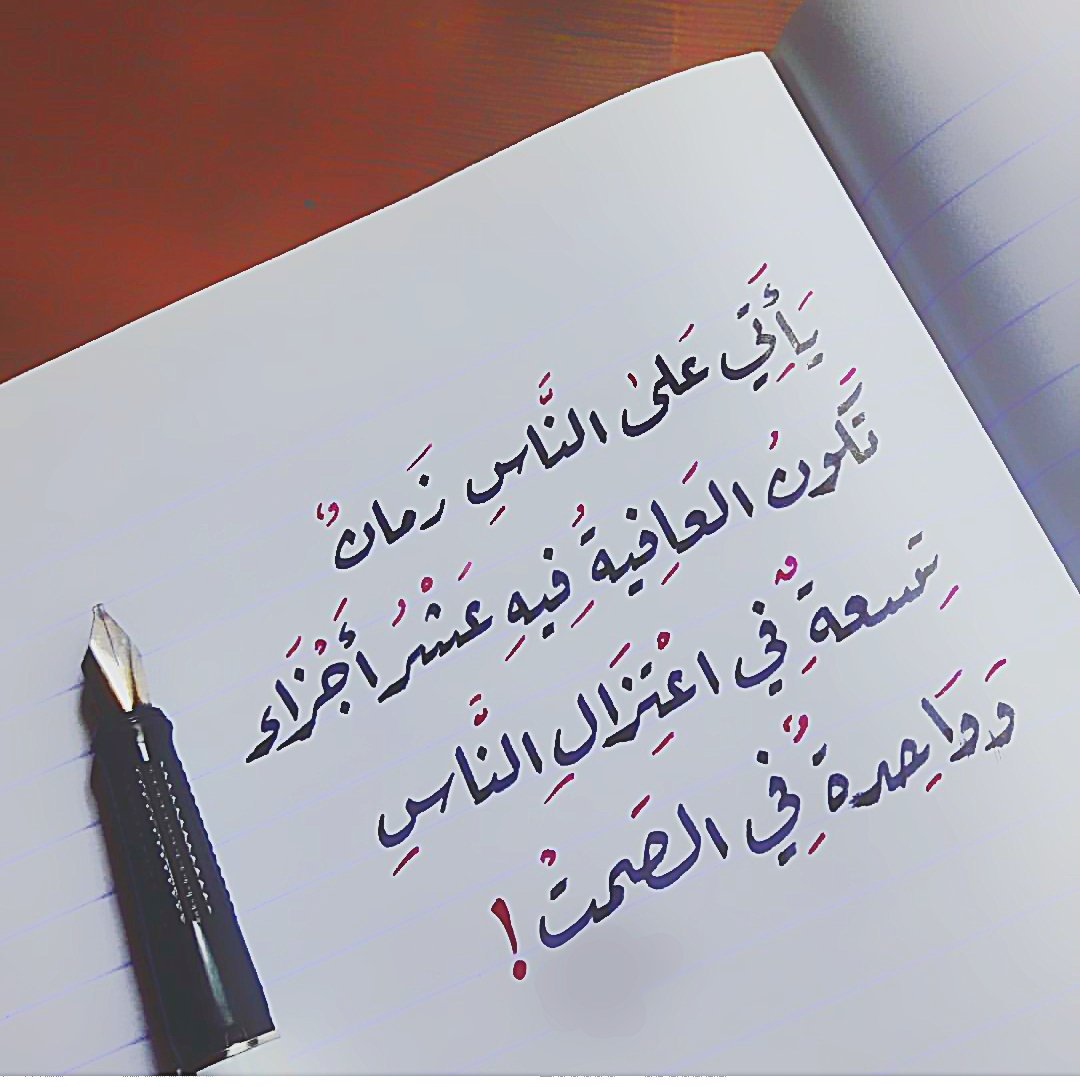 يَأْتِي عَلىٰ النَّاسِ زَمانٌ
تَكونُ العَافِيةُ فِيهِ عَشْرُ أَجْزَاَء
تِسعةٌ فِي اعْتِزَالِ النَّاسِ
وَوَاحِدةٌ فِي الصَمتْ!